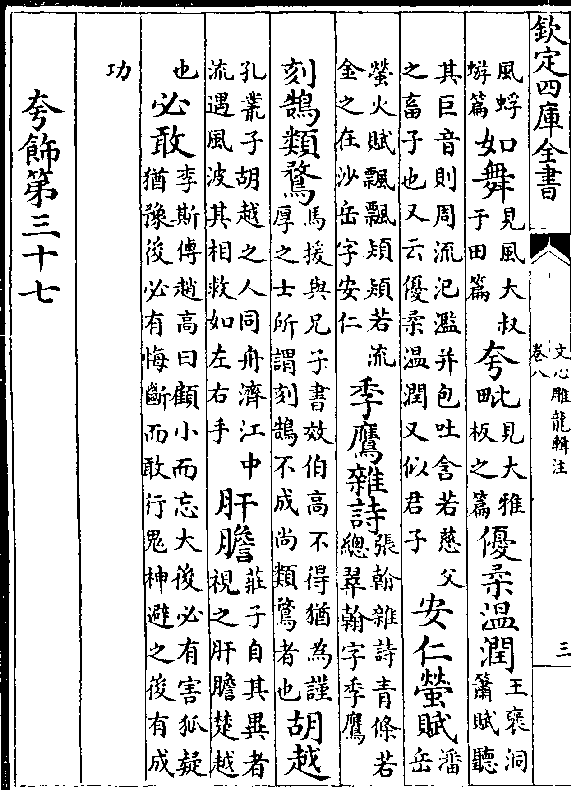 欽定四庫全書
文心雕龍輯注
卷八
三
風蜉
蝣篇
如舞
見風大叔
于田篇
夸毗
見大雅
板之篇
優柔溫潤
王襃洞
簫賦聽
其巨音則周流氾濫并包吐含若慈父
之畜子也又云優柔溫潤又似君子
安仁螢賦
潘岳
螢火賦飄飄熲熲若流
金之在沙岳字安仁
季鷹雜詩
張翰雜詩青條若
總翠翰字季鷹
刻鵠類鶩
馬援與兄子書效伯高不得猶為謹
厚之士所謂刻鵠不成尚類鶩者也
胡越
孔叢子胡越之人同舟濟江中
流遇風波其相救如左右手
肝膽
莊子自其異者
視之肝膽楚越
也
必敢
李斯傳趙高曰顧小而忘大後必有害狐疑
猶豫後必有悔斷而敢行鬼神避之後有成
功
夸飾第三十七